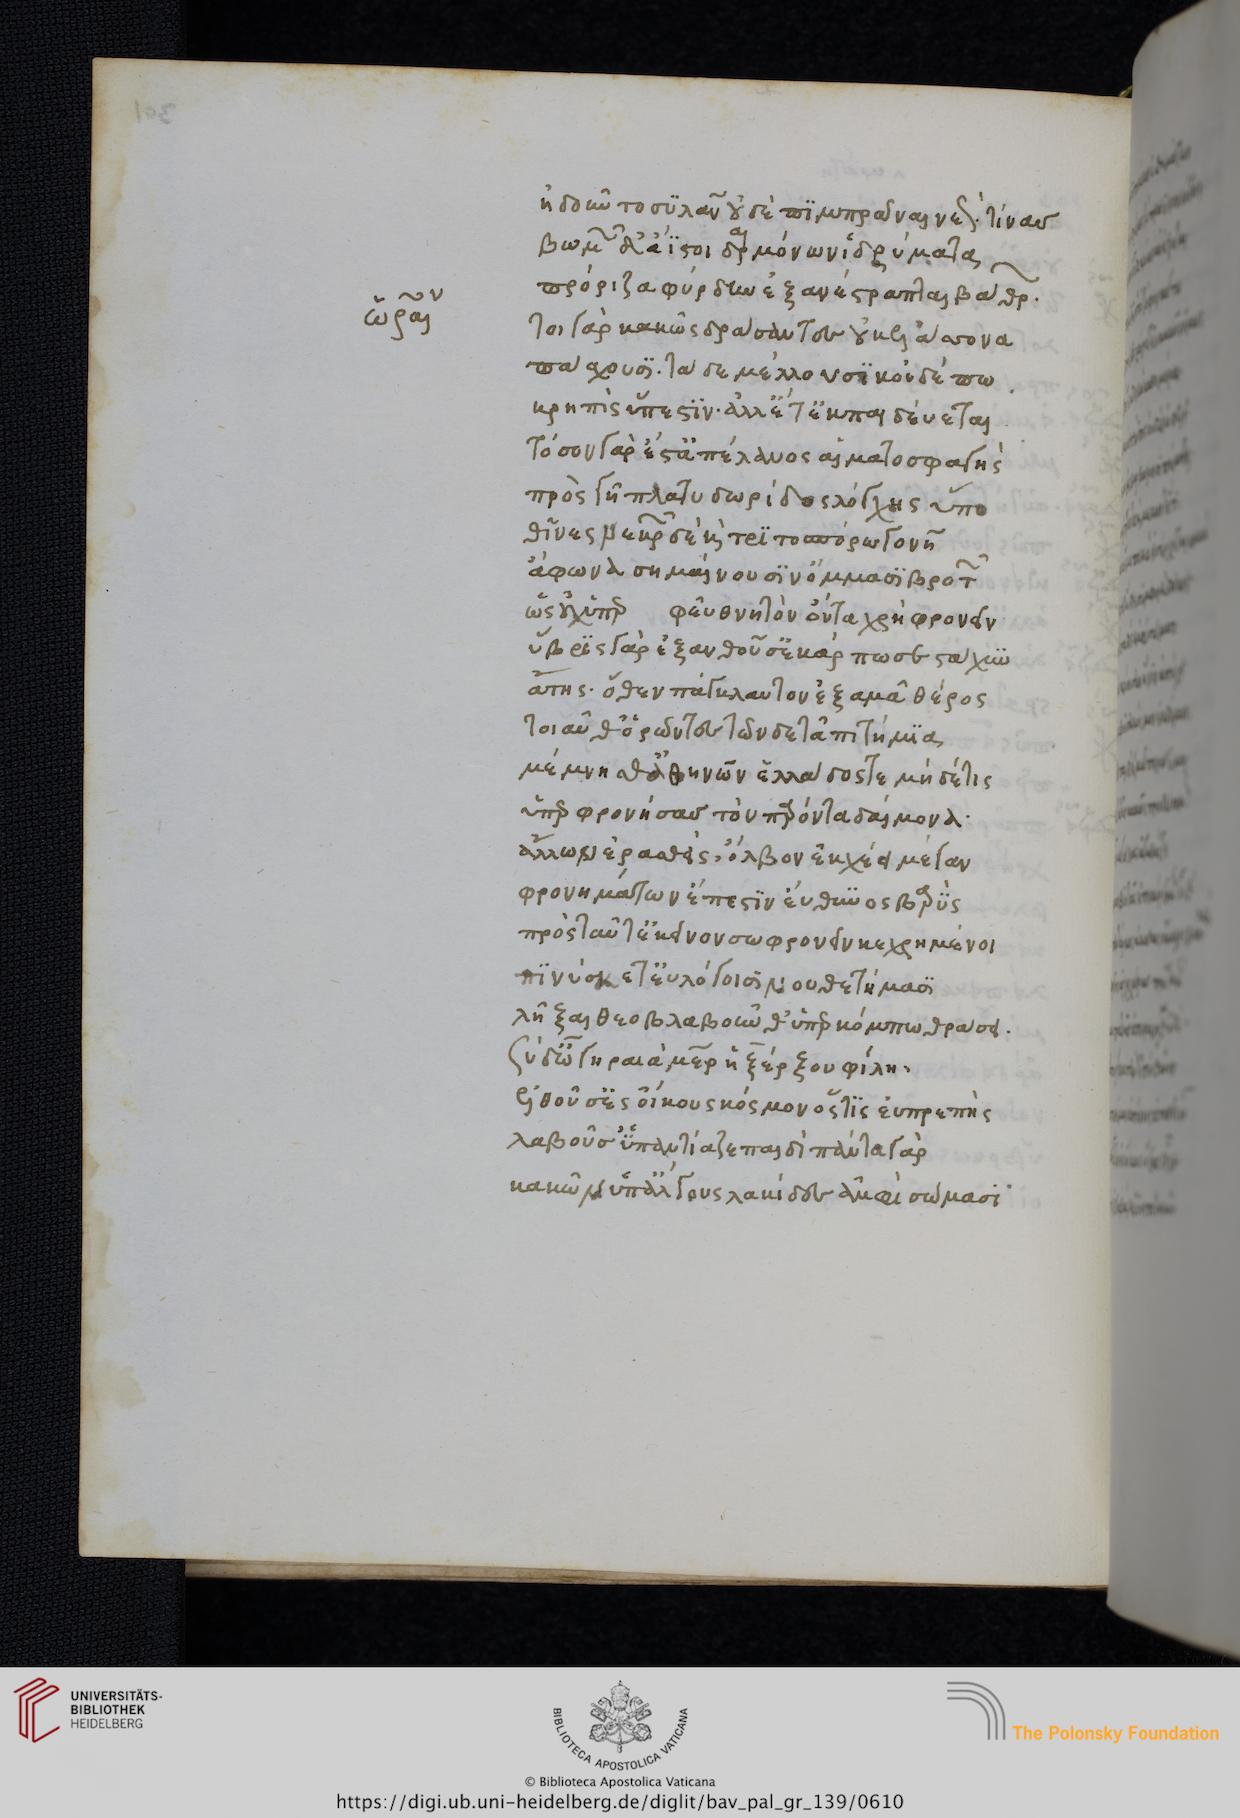 301
ᾐδοῦντο συλᾶν οὐδὲ πιμπράναι νεώς· τίνασ
βωμοὶ δ' ἄϊστοι δαιμόνων ἱδρύματα
πρόριζα φύρδην ἐξανέστραπται βάθρων·
ὥραν
τοιγὰρ κακῶς δράσαντες οὐκ ἐλάσσονα
πάσχουσι· τὰ δὲ μέλλουσι κοὐδέπω
κρηπὶς ὕπεστιν· ἀλλ' ἔτ' ἐκπαιδεύεται
τόσον γὰρ ἔσται πέλανος αἱματοσφαγὴς
πρὸς γῆ πλατυ δωρίδος λόγχης ὕπο
θῖνες νεκρῶν δὲ καὶ τριτοσπόρω γονῆ
ἄφωνα σημαίνουσιν ὄμμασι βροτῶν
ὡς οὐχ ὑπὲρ φεῦ θνητὸν ὄντα χρὴ φρονεῖν
ὕβρις γὰρ ἐξανθοῦσ' ἐκάρπωσε στάχυν
ἄτης· ὅθεν πάγκλαυτον ἐξαμᾶ θέρος
τοιαῦθ' ὁρῶντες τῶνδε τἀπιτήμια
μέμνησθ' ἀθηνῶν ἑλλάδος τε μηδέ τις
ὑπερφρονήσασ τὸν παρόντα δαίμονα·
ἄλλων ἐρασθεὶς, ὄλβον ἐκχέει μέγαν
φρονημάτων ἔπεστιν εὔθυνος βαρὺς
πρὸς ταῦτ' ἐκεῖνον σωφρονεῖν κεχρημένοι
πινύσκετ' εὐλόγοισι νουθετήμασι
λῆξαι θεοβλαβοῦνθ' ὑπερκόμπω θράσει·
σὺ δ' ὦ γηραιὰ μῆτερ ἡ ξέρξου φίλη·
ἐλθοῦσ' ἐς οἴκους κόσμον ὅστις εὐπρεπὴς
λαβοῦσ' ὑπαντίαζε παιδὶ πάντα γὰρ
κακῶν ὑπ' ἄλγους λακίδες ἀμφὶ σώμασι
UNIVERSITÄTS-
BIBLIOTHEK
HEIDELBERG
BIBLIOTECA APOSTOLICA VATICANA
The Polonsky Foundation
© Biblioteca Apostolica Vaticana
https://digi.ub.uni-heidelberg.de/diglit/bav_pal_gr_139/0610